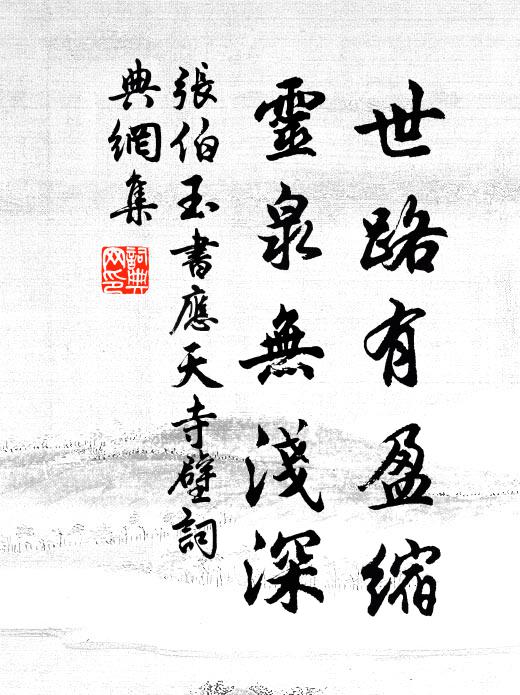 世路有盈縮
靈泉無淺深
張伯玉書應天寺壁詞
典網集
詞典網印